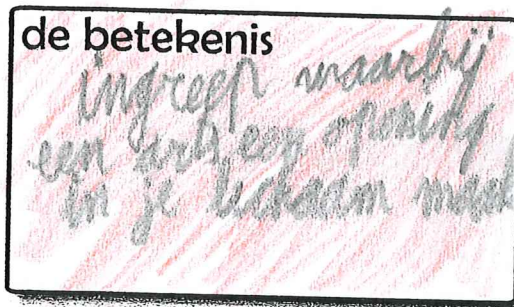 de betekenis
ingreep waarbij
een arts een opening
in je lichaam maak